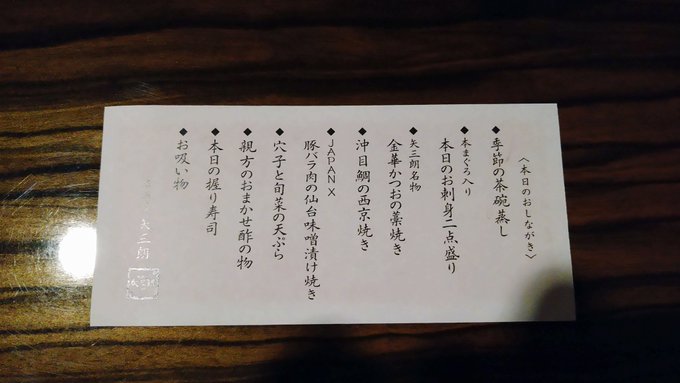 〈本日のおしながき〉
◆季節の茶碗蒸し
◆本まぐろ入り
本日のお刺身二点盛り
◆矢三朗名物
金華かつおの藁焼き
◆沖目鯛の西京焼き
◆JAPAN X
豚バラ肉の仙台味噌漬け焼き
◆穴子と旬菜の天ぷら
◆親方のおまかせ酢の物
◆本日の握り寿司
◆お吸い物
矢三朗